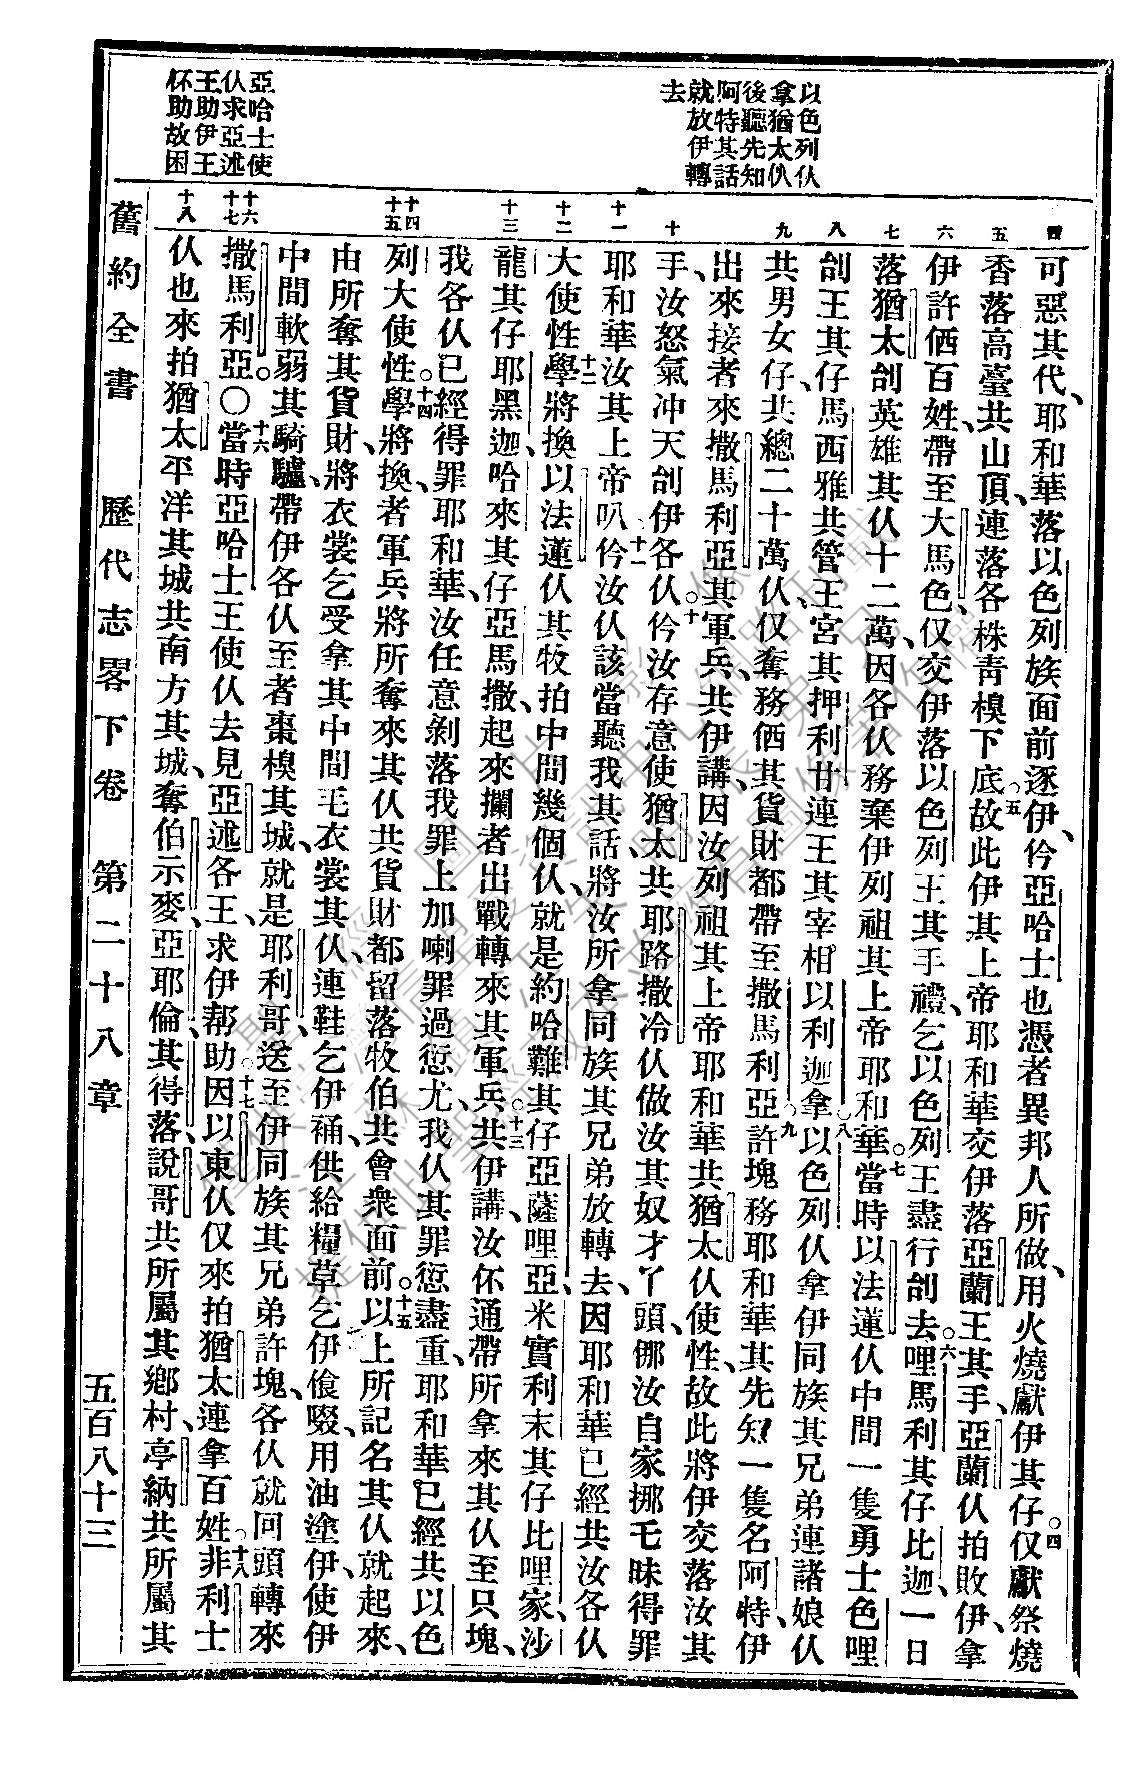 以色列仈
拿猶太仈
後聽先知
阿特其話
就放伊轉
去
亞哈士使
仈求亞述
王助伊王
伓助故困
四
五
六
七
八
九
十
十一
十二
十三
十四
十五
十六
十七
十八
可惡其代、耶和華落以色列族面前逐伊、仱亞哈士也憑者異邦人所做、用火燒獻伊其仔。四仅獻祭燒
香落高臺共山頂、連落各株靑模下底。五故此伊其上帝耶和華交伊落亞蘭王其手、亞蘭仈拍敗伊、拿
伊許佰百姓、帶至大馬色、仅交伊落以色列王其手禮、乞以色列王盡行刣去。六哩馬利其仔比迦、一日
落猶太刣英雄其仈十二萬、因各仈務棄伊列祖其上帝耶和華。七當時以法蓮仈中間一隻勇士色哩
刣王其仔馬西雅、共管王宮其押利甘、連王其宰相以利迦拿。八以色列仈拿伊同族其兄弟連諸娘仈
共男女仔、共總二十萬仈、仅奪務佰其貨財都帶至撒馬利亞。九許塊務耶和華其先知一隻名阿特、伊
出來接者來撒馬利亞其軍兵、共伊講、因汝列祖其上帝耶和華共猶太仈使性、故此將伊交落汝其
手、汝怒氣冲天刣伊各仈。十仱汝存意使猶太共耶路撒冷仈做汝其奴才丫頭、㑚汝自家挪乇昧得罪
耶和華汝其上帝叭。十一仱汝仈該當聽我其話、將汝所拿同族其兄弟放轉去、因耶和華已經共汝各仈
大使性學。十二將換以法蓮仈其牧拍中間幾個仈、就是約哈難其仔亞薩哩亞、米實利末其仔比哩家、沙
龍其仔耶黑迦、哈來其仔亞馬撒、起來攔者出戰轉來其軍兵。十三共伊講、汝伓通帶所拿來其仈至只塊、
我各仈已經得罪耶和華、汝任意剝落我罪上加喇罪過愆尤、我仈其罪愆盡重、耶和華已經共以色
列大使性學。十四將換、者軍兵將所奪來其仈共貨財都留落牧伯共會衆面前。十五以上所記名其仈就起來、
由所奪其貨財、將衣裳乞受拿其中間乇衣裳其仈、連鞋乞伊䘼、供給糧草乞伊飡啜、用油塗伊、使伊
中間軟弱其騎驢、帶伊各仈至者棗模其城、就是耶利哥、送至伊同族其兄弟許塊、各仈就回頭轉來
撒馬利亞。○十六當時亞哈士王使仈去見亞述各王、求伊幇助。十七因以東仈仅來拍猶太、連拿百姓。十八非利士
仈也來拍猶太平洋其城共南方其城、奪伯示麥、亞耶倫、其得落、說哥共所屬其鄉村、亭納共所屬其
舊約全書　歷代志畧下卷　第二十八章　五百八十三